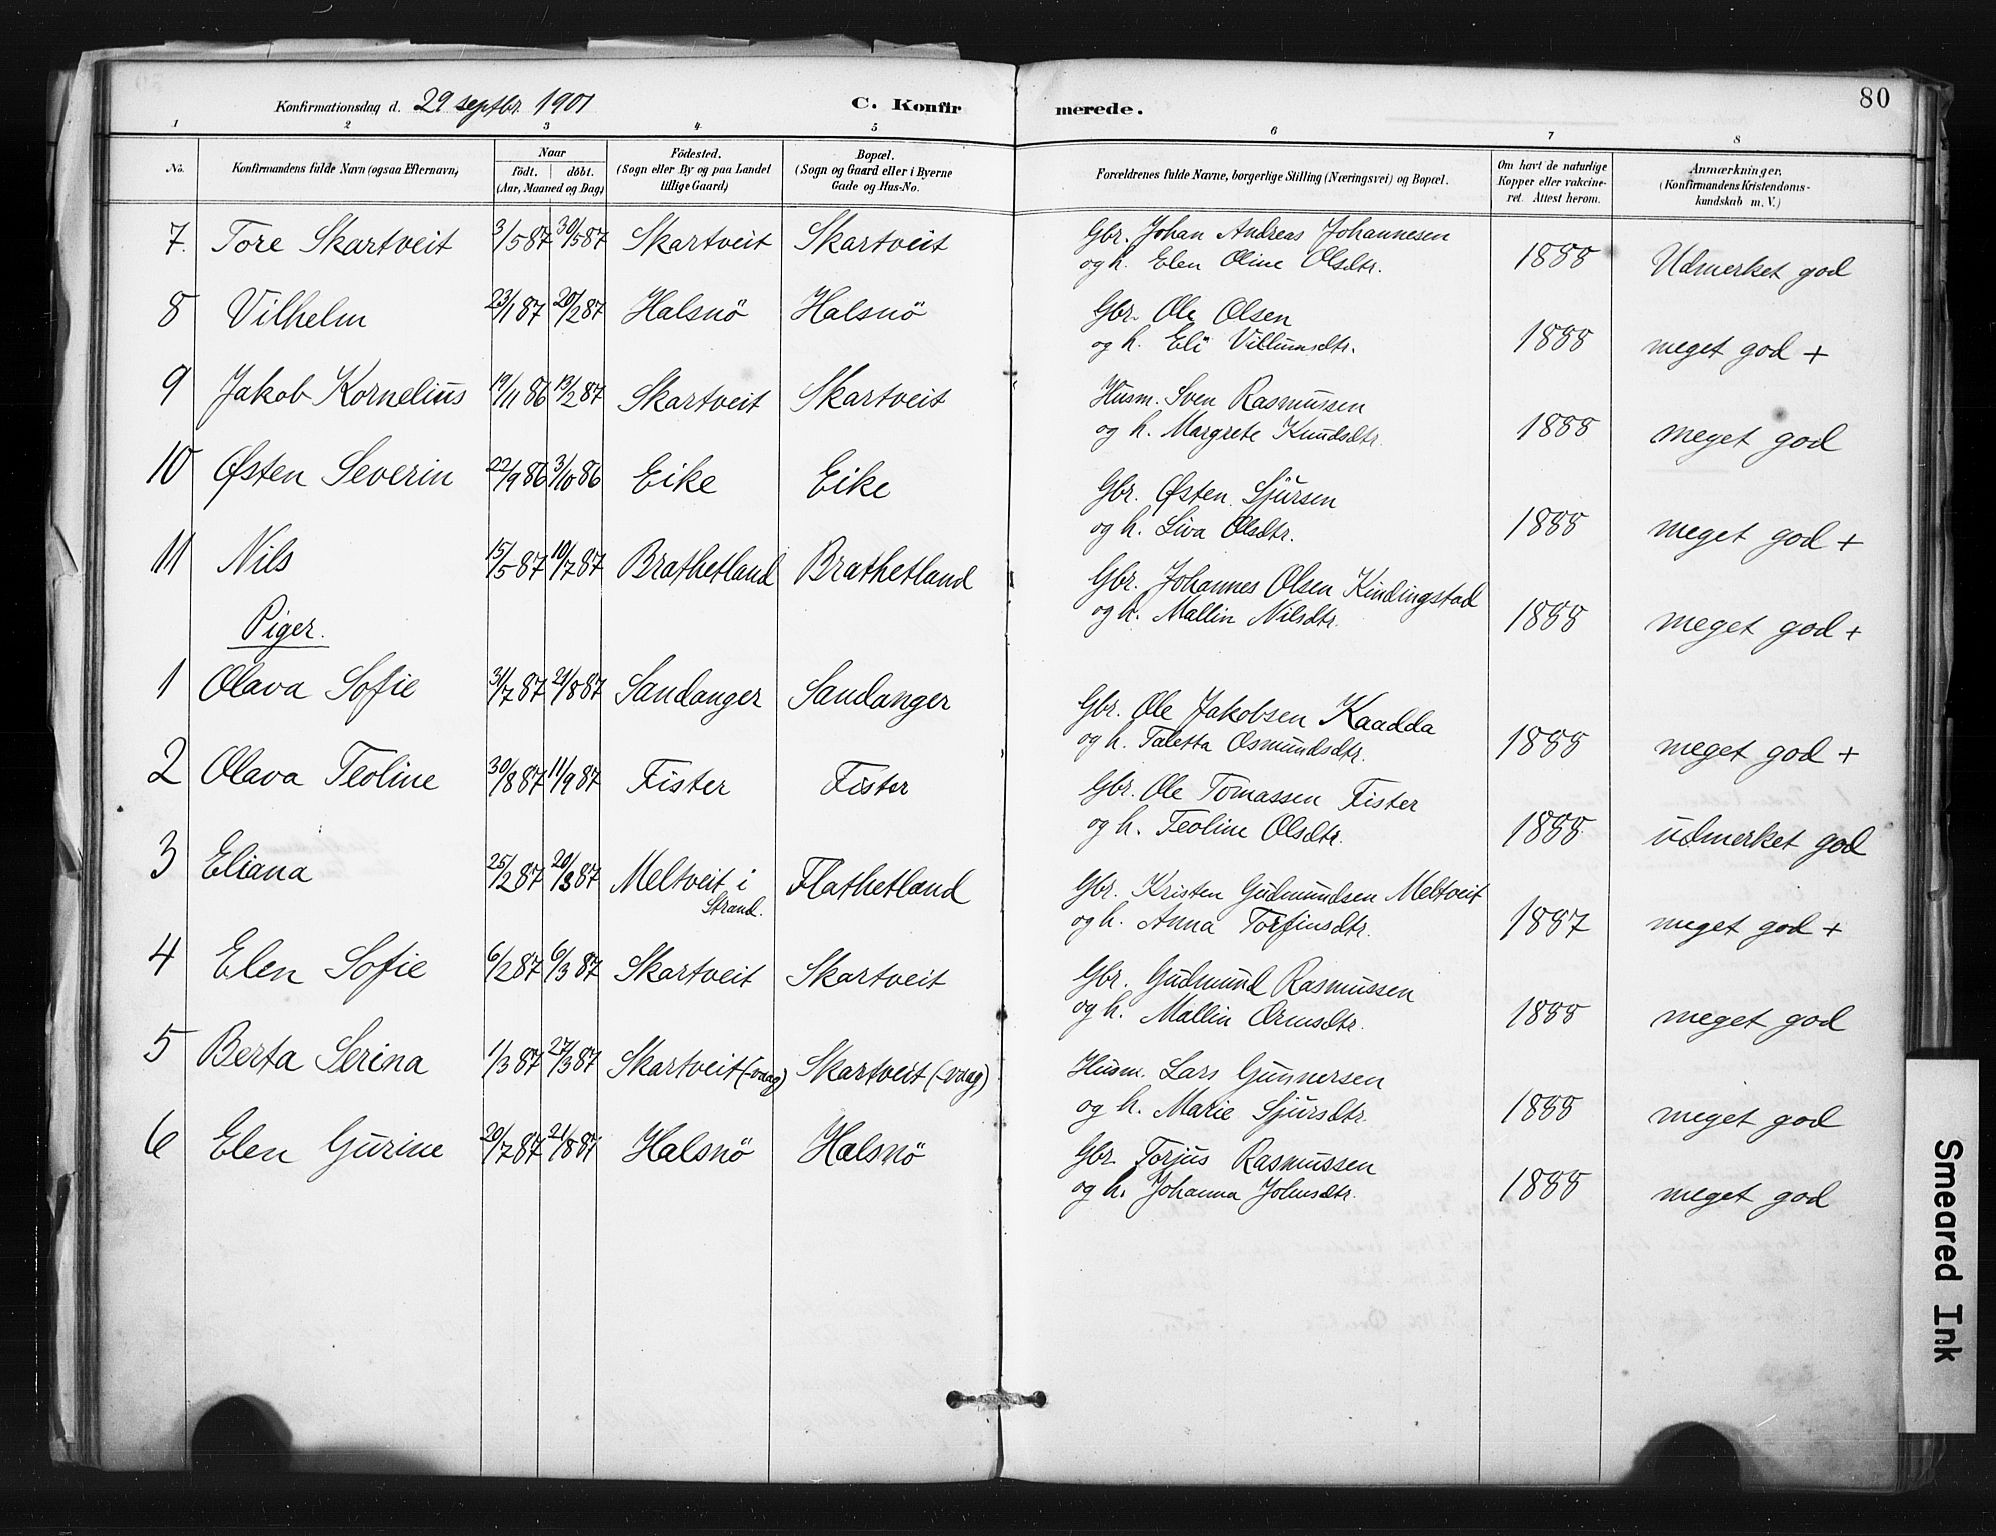 80
Konfirmationsdag d. 29 septbr. 1901 C. Konfir merede.
1 2 3 4 5 6 7 8
No. Konfirmandens fulde Navn (ogsaa Efternavn) Naar født. døbt. (Aar, Maaned og Dag) Fødested. (Sogn eller By og paa Landet tillige Gaard) Bopæl. (Sogn og Gaard eller i Byerne Gade og Hus-No. Forældrenes fulde Navne, borgerlige Stilling (Næringsvei) og Bopæl. Om havt de naturlige Kopper eller vakcineret. Attest herom. Anmærkninger. (Konfirmandens Kristendomskundskab m. V.)
7. Tore Skartveit 3/5 87 30/5 87 Skartveit Skartveit Gbr. Johan Andreas Johannesen
og h. Elen Oline Olsdtr. 1888 Udmerket god
8 Vilhelm 23/1 87 20/2 87 Halsnö Halsnö Gbr. Ole Olsen
og h. Eli Villumsdtr. 1888 meget god +
9 Jakob Kornelius 19/11 86 13/2 87 Skartveit Skartveit Husm. Sven Rasmussen
og h. Margrete Knudsdtr. 1888 meget god
10 Østen Severin 22/9 86 3/10 86 Eike Eike Gbr. Østen Sjursen
og h. Siva Olsdtr. 1888 meget god +
11 Nils 15/5 87 10/7 87 Brathetland Brathetland Gbr. Johannes Olsen Kindingstad
og h. Mallin Nilsdtr. 1888 meget god +
Piger.
1 Olava Sofie 31/7 87 21/8 87 Sandanger Sandanger Gbr. Ole Jakobsen Kaadda
og h. Taletta Osmundsdtr. 1888 meget god +
2 Olava Teoline 30/8 87 11/9 87 Fister Fister Gbr. Ole Tomassen Fister
og h. Teoline Olsdtr. 1888 udmerket god
3 Eliana 25/2 87 20/3 87 Meltveit i Strand. Flathetland Gbr. Kristen Gudmundsen Meltveit
og h. Anna Torfinsdtr. 1887 meget god +
4 Elen Sofie 6/2 87 6/3 87 Skartveit Skartveit Gbr. Gudmund Rasmussen
og h. Mallin Ormsdtr. 1888 meget god
5 Berta Serina 1/3 87 27/3 87 Skartveit (-vaag) Skartveit (-vaag) Husm. Lars Gunnersen
og h. Marie Sjursdtr. 1888 meget god
6 Elen Gurine 20/7 87 21/8 87 Halsnö Halsnö Gbr. Torjus Rasmussen
og h. Johanna Johnsdtr. 1888 meget god
Smeared Ink